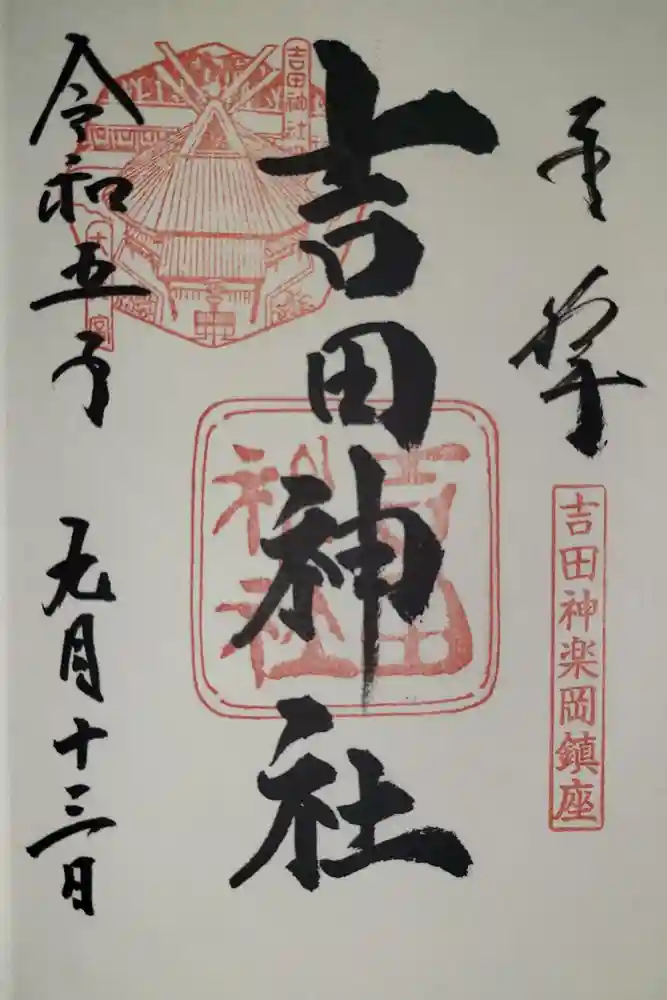 奉拝
吉田神楽岡鎮座
吉田神社
吉田神社
吉田神社
令和五年
九月十三日